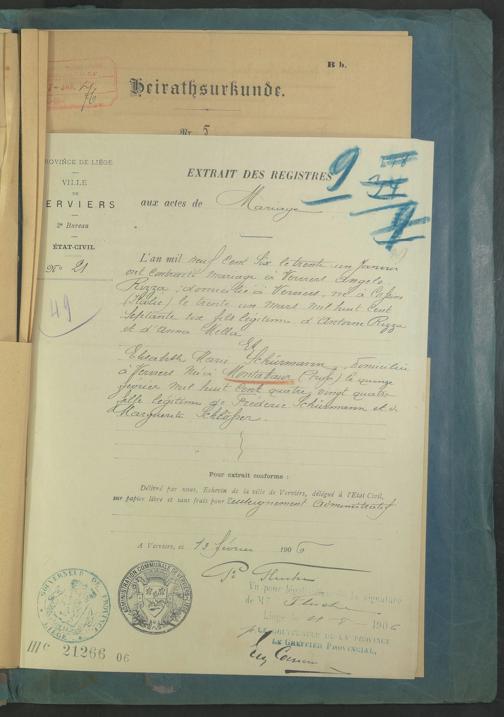 B b.
Heirathsurkunde.
Nr. 5
PROVINCE DE LIÉGE
VILLE
DE
VERVIERS
2e Bureau
ÉTAT-CIVIL
No 21
49
EXTRAIT DES REGISTRES
aux actes de Mariage
9
L'an mil neuf Cent Six le trente un Janvier
ont Contracté mariage à Verviers Angelo
Rizza, domicilié à Verviers, né à
(Italie) le trente un Mars mil huit Cent
Septante six fils légitime d'Antoine Rizza
et d'Anna Mella
Et
Elisabeth Marie Schürmann, domiciliée
à Verviers née à Montabaur (Prusse) le quinze
février mil huit Cent quatre vingt quatre
fille légitime de Frédéric Schürmann et de
Marguerite Schlösser.
Pour extrait conforme :
Délivré par nous, Echevin de la ville de Verviers, délégué à l'Etat Civil,
sur papier libre et sans frais pour renseignement administratif
A Verviers, le 13 février 1906
Vu pour légalisation de la signature
de Mr
Liége le 1906
LE GOUVERNEUR DE LA PROVINCE
LE GREFFIER PROVINCIAL,
ADMINISTRATION COMMUNALE DE VERVIERS
GOUVERNEUR DE LA PROVINCE
LIÉGE
IIIC 21266 06